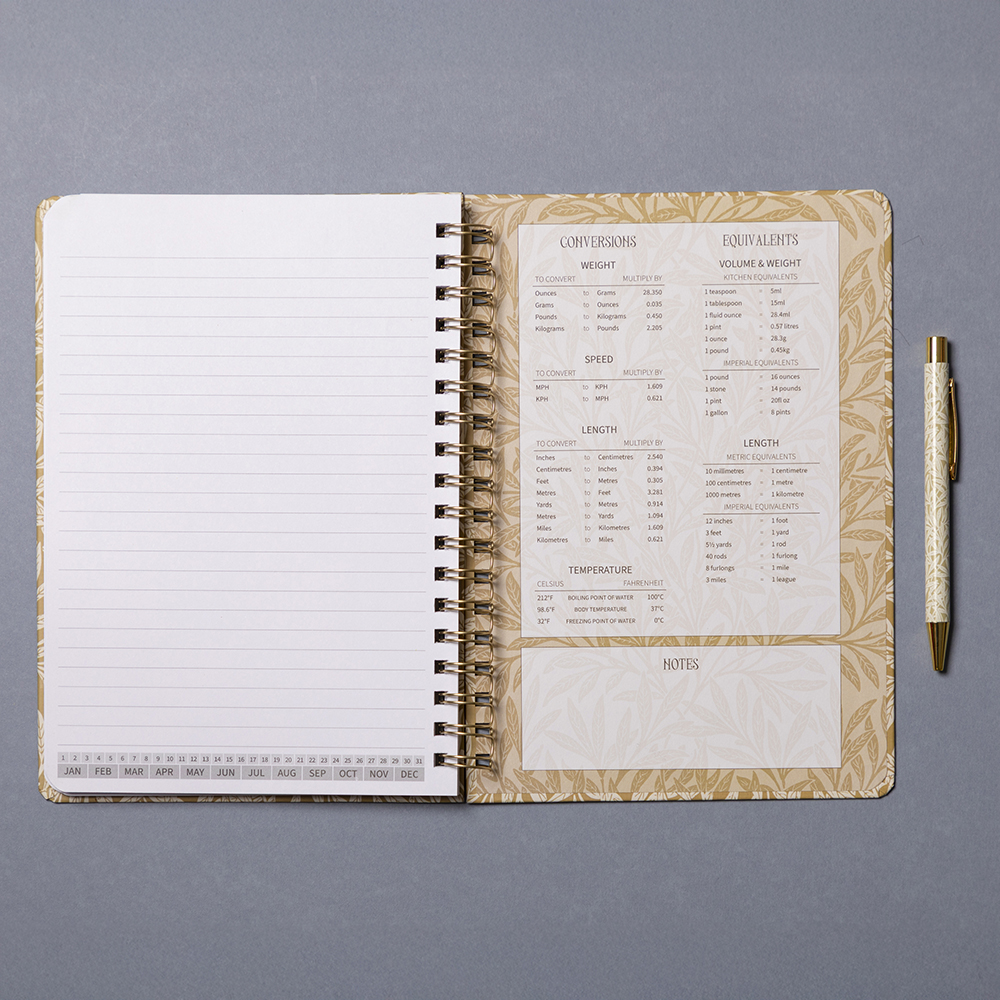 1 2 3 4 5 6 7 8 9 10 11 12 13 14 15 16 17 18 19 20 21 22 23 24 25 26 27 28 29 30 31
JAN FEB MAR APR MAY JUN JUL AUG SEP OCT NOV DEC
CONVERSIONS
WEIGHT
TO CONVERT MULTIPLY BY
Ounces to Grams 28.350
Grams to Ounces 0.035
Pounds to Kilograms 0.450
Kilograms to Pounds 2.205
SPEED
TO CONVERT MULTIPLY BY
MPH to KPH 1.609
KPH to MPH 0.621
LENGTH
TO CONVERT MULTIPLY BY
Inches to Centimetres 2.540
Centimetres to Inches 0.394
Feet to Metres 0.305
Metres to Feet 3.281
Yards to Metres 0.914
Metres to Yards 1.094
Miles to Kilometres 1.609
Kilometres to Miles 0.621
TEMPERATURE
CELSIUS FAHRENHEIT
212°F BOILING POINT OF WATER 100°C
98.6°F BODY TEMPERATURE 37°C
32°F FREEZING POINT OF WATER 0°C
EQUIVALENTS
VOLUME & WEIGHT
KITCHEN EQUIVALENTS
1 teaspoon = 5ml
1 tablespoon = 15ml
1 fluid ounce = 28.4ml
1 pint = 0.57 litres
1 ounce = 28.3g
1 pound = 0.45kg
IMPERIAL EQUIVALENTS
1 pound = 16 ounces
1 stone = 14 pounds
1 pint = 20fl oz
1 gallon = 8 pints
LENGTH
METRIC EQUIVALENTS
10 millimetres = 1 centimetre
100 centimetres = 1 metre
1000 metres = 1 kilometre
IMPERIAL EQUIVALENTS
12 inches = 1 foot
3 feet = 1 yard
5½ yards = 1 rod
40 rods = 1 furlong
8 furlongs = 1 mile
3 miles = 1 league
NOTES